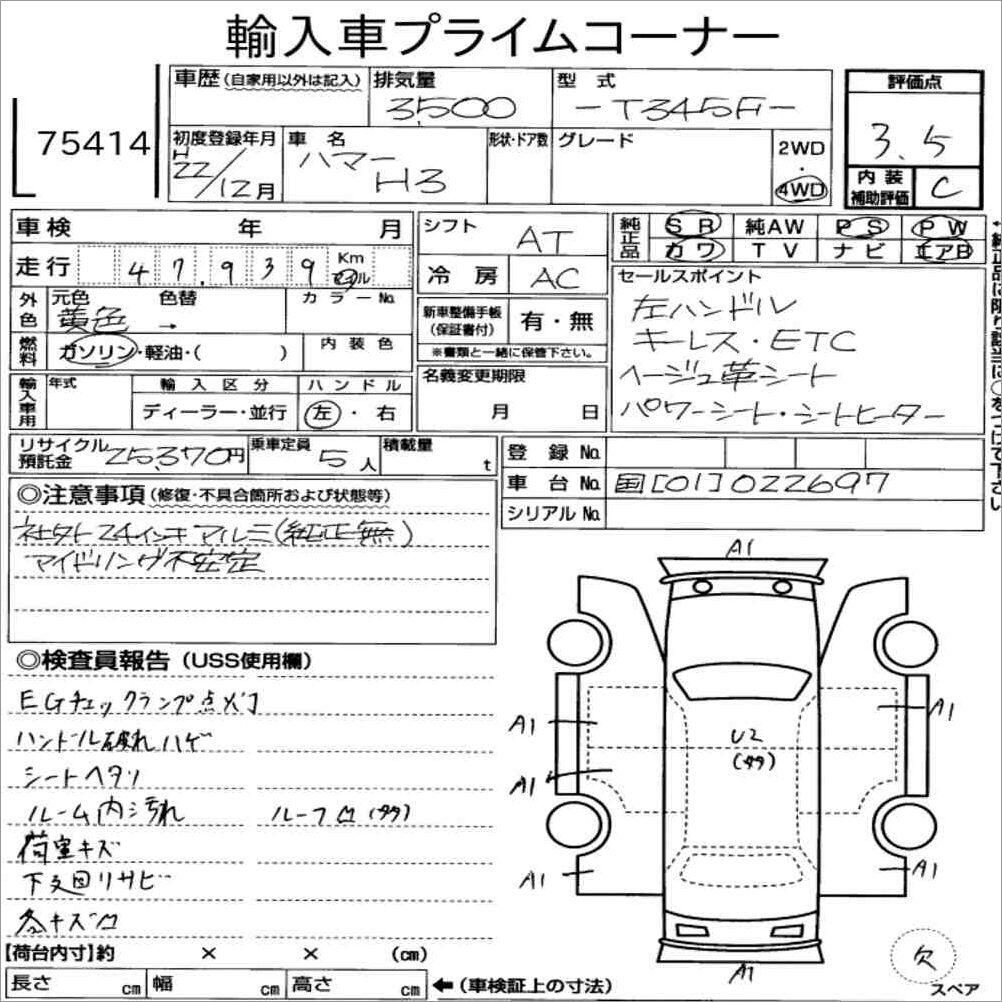 輸入車プライムコーナー
75414
車歴 (自家用以外は記入)
排気量
3,500
型式
-T345F-
評価点
3.5
初度登録年月
H
22/12月
車名
ハマー
H3
形状・ドア数
グレード
2WD
・
4WD
内装
補助評価
C
車検 年 月
シフト
AT
純正品
SR 純AW PS PW
カワ TV ナビ エアB
走行 47,939 Km
マイル
冷房
AC
セールスポイント
左ハンドル
キーレス・ETC
ベージュ革シート
パワーシート・シートヒーター
外色
元色
黄色
色替
→
カラーNo.
新車整備手帳
(保証書付)
有・無
※書類と一緒に保管下さい。
燃料
ガソリン・軽油・( )
内装色
輸入車用
年式
輸入区分
ディーラー・並行
ハンドル
左・右
名義変更期限
月 日
リサイクル
預託金
25,370円
乗車定員
5人
積載量
t
登録No.
車台No.
国[01]022697
シリアルNo.
◎注意事項(修復・不具合箇所および状態等)
社外24インチアルミ(純正無)
アイドリング不安定
◎検査員報告 (USS使用欄)
EGチェックランプ点灯
ハンドル破れハゲ
シートヘタリ
ルーム内汚れ
ルーフ凹(タタ)
荷室キズ
下文回リサビ
各キズ凹
A1
A1
A1
U2
(タタ)
A1
A1
A1
A1
欠
スペア
【荷台内寸】約 × × (cm)
長さ cm 幅 cm 高さ cm
←(車検証上の寸法)